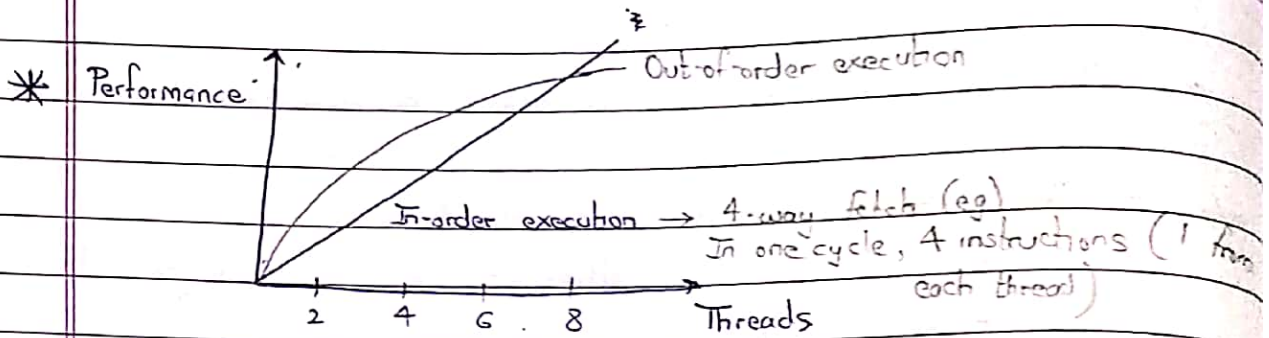 * Performance
Out-of-order execution
In-order execution → 4-way fetch (eg)
In one cycle, 4 instructions (1 from
each thread)
2 4 6 8 Threads